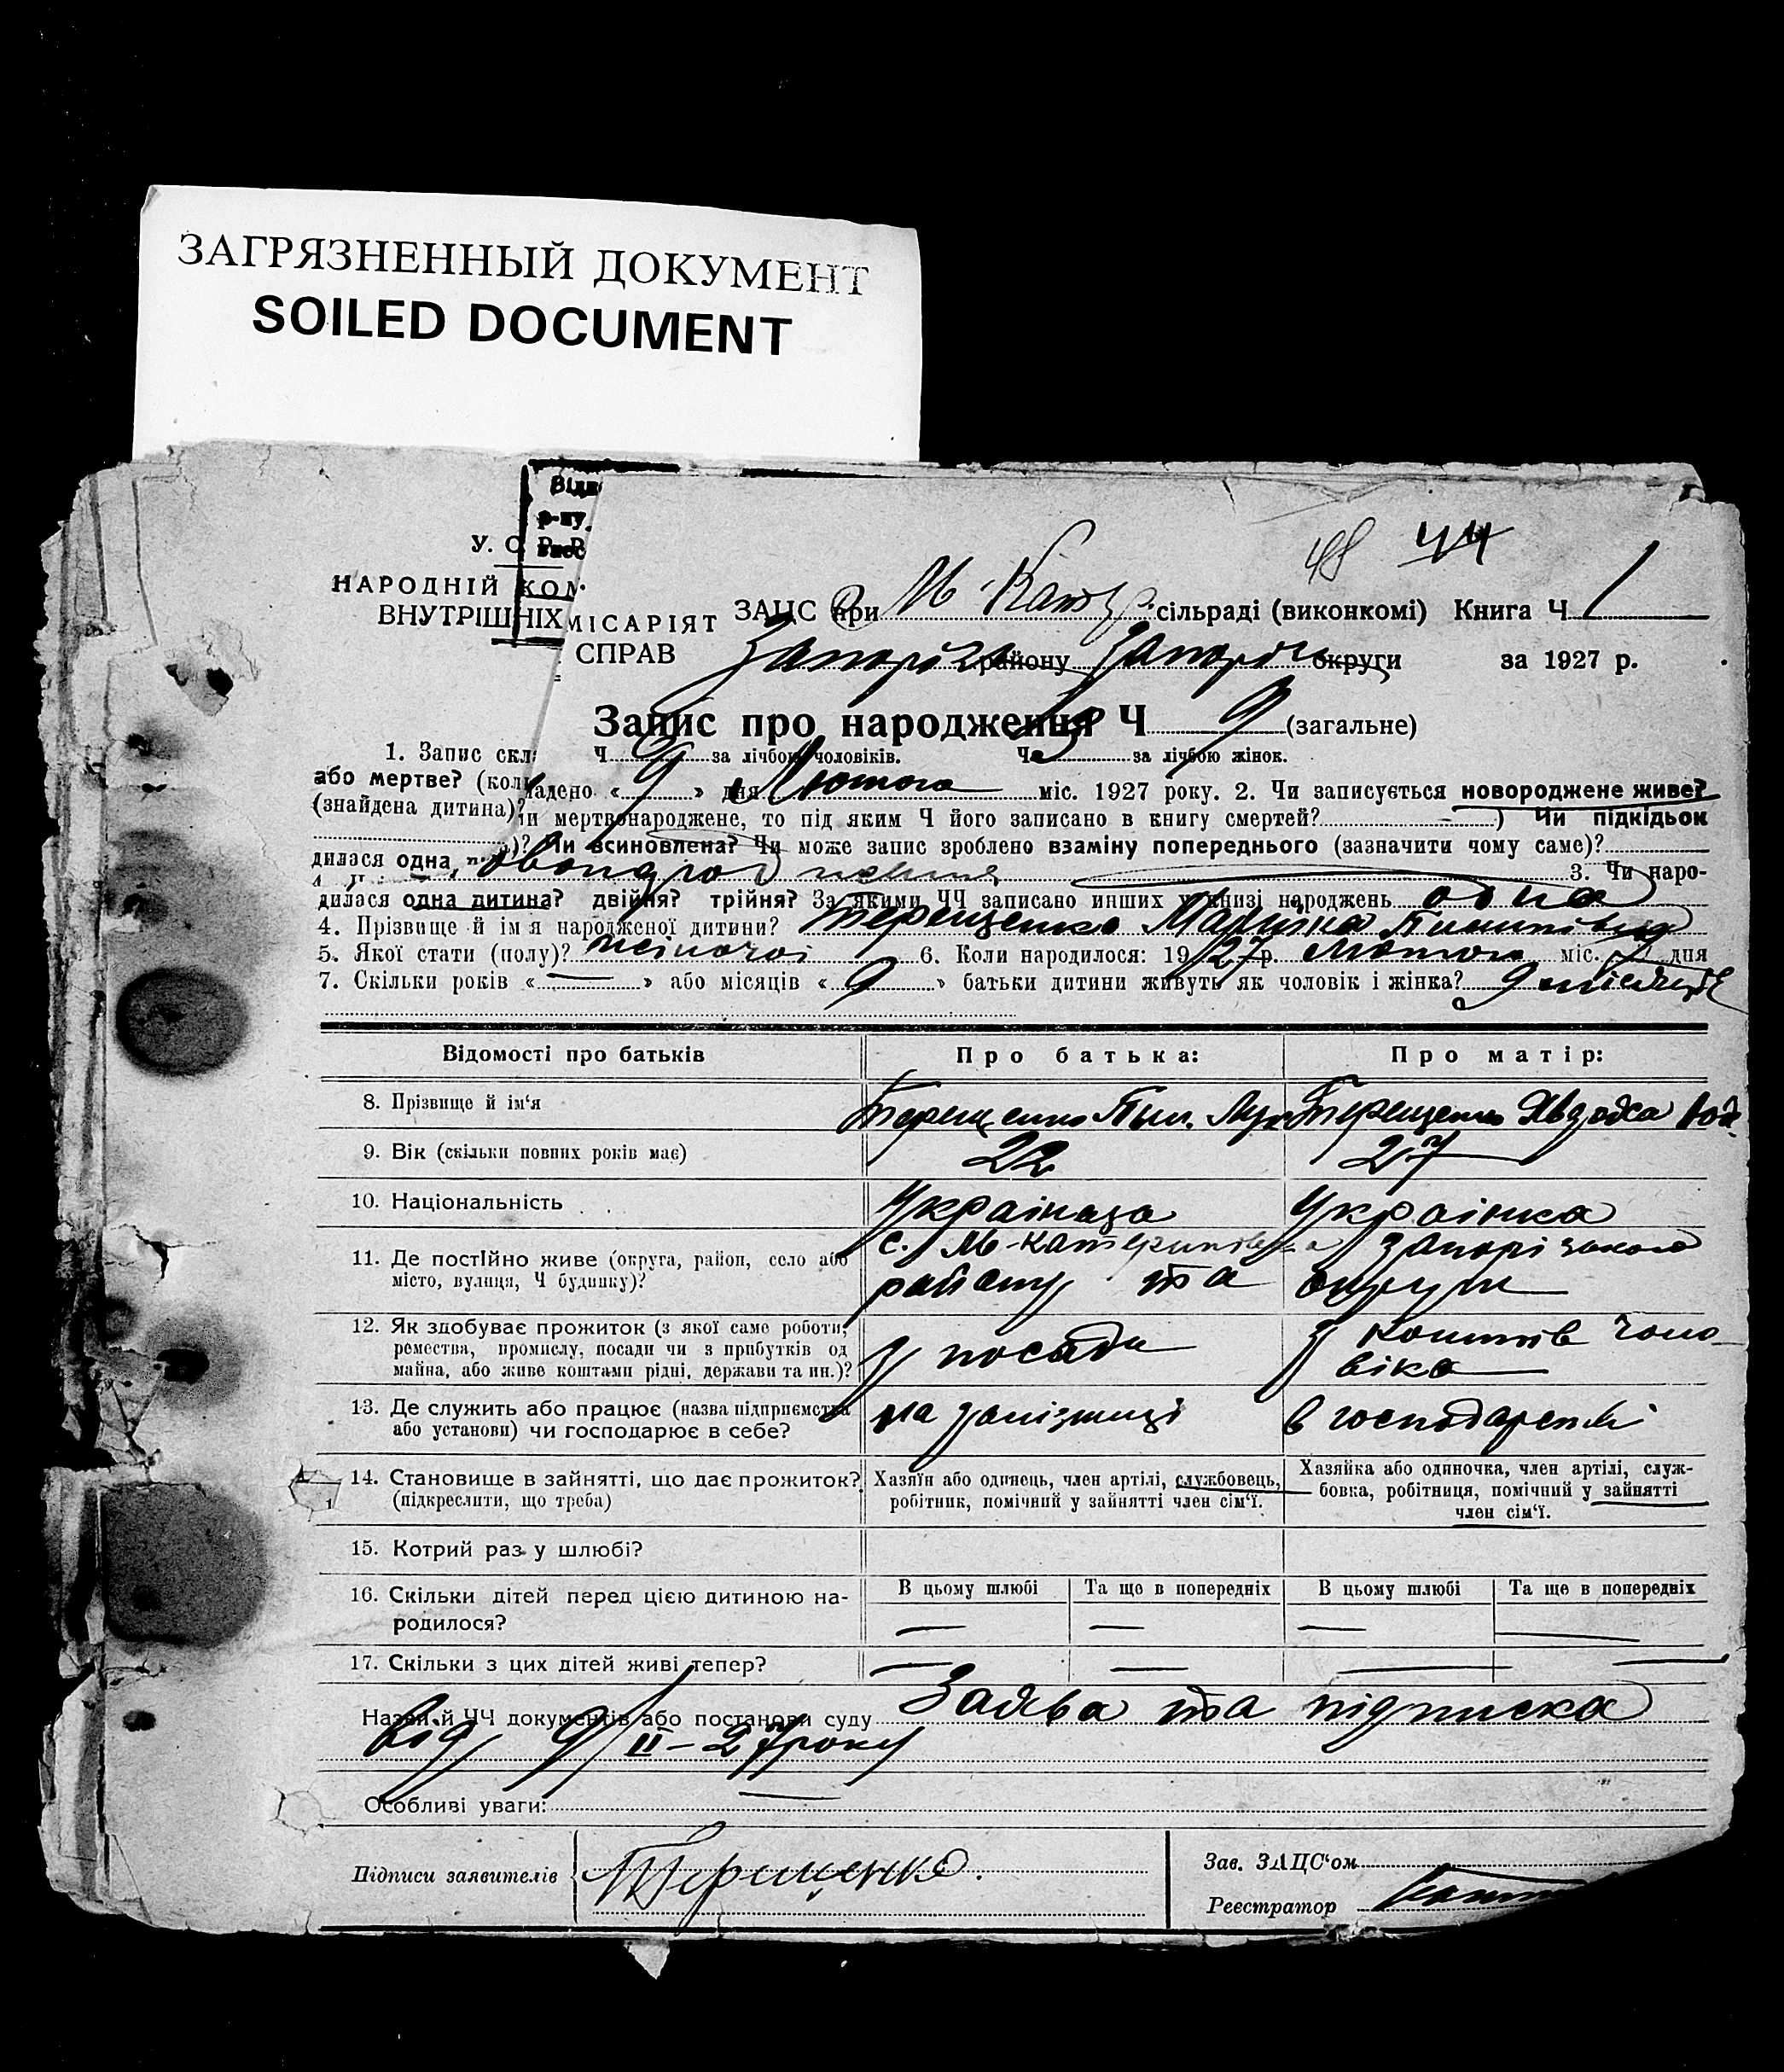 ЗАГРЯЗНЕННЫЙ ДОКУМЕНТ
SOILED DOCUMENT
48 44
У. С. Р. Р.
НАРОДНІЙ КОМ
МІСАРІЯТ
ВНУТРІШНІХ
СПРАВ
ЗАЦС при М Катер. сільраді (виконкомі) Книга Ч 1
Запоріз району Запоріз округи за 1927 р.
Запис про народження Ч 9 (загальне)
Ч за лічбою чоловіків. Ч за лічбою жінок.
1. Запис скл
ладено « 9 » дня Лютого міс. 1927 року. 2. Чи записується новороджене живе?
або мертве? (кол
и мертвонароджене, то під яким Ч його записано в книгу смертей? ) Чи підкідьок
(знайдена дитина)?
)? Чи всиновлена? Чи може запис зроблено взаміну попереднього (зазначити чому саме)?
3. Чи наро-
дилася одна,
дилася одна дитина? двійня? трійня? За якими ЧЧ записано инших у книзі народжень одна
4. Прізвище й ім'я народженої дитини? Терещенко
5. Якої стати (полу)? жіночої 6. Коли народилося: 1927 р. лютого міс. дня
7. Скільки років « — » або місяців « 9 » батьки дитини живуть як чоловік і жінка? 9 місяців
Відомості про батьків Про батька: Про матір:
8. Прізвище й ім'я Терещенко Пил. Терещенко Явдоха
9. Вік (скільки повних років має) 22 27
10. Національність Українець Українка
11. Де постійно живе (округа, район, село або місто, вулиця, Ч будинку)?
с. М-Катеринівка Запорізького
району та округи
12. Як здобуває прожиток (з якої саме роботи, ремества, промислу, посади чи з прибутків од майна, або живе коштами рідні, держави та ин.)?
З посади З коштів чоло
віка
13. Де служить або працює (назва підприємства або установи) чи господарює в себе?
на залізниці в господарстві
14. Становище в зайнятті, що дає прожиток? (підкреслити, що треба)
Хазяїн або одинець, член артілі, службовець, робітник, помічний у зайнятті член сім'ї.
Хазяйка або одиночка, член артілі, служ-
бовка, робітниця, помічний у зайнятті
член сім'ї.
15. Котрий раз у шлюбі?
16. Скільки дітей перед цією дитиною на-
родилося?
В цьому шлюбі Та що в попередніх В цьому шлюбі Та ще в попередніх
— — — —
17. Скільки з цих дітей живі тепер?
— — — —
Назви й ЧЧ документів або постанови суду Заява та підписка
від 9/II-27 року
Особливі уваги: —
Підписи заявителів Терещенко.
Зав. ЗАЦС'ом
Реєстратор